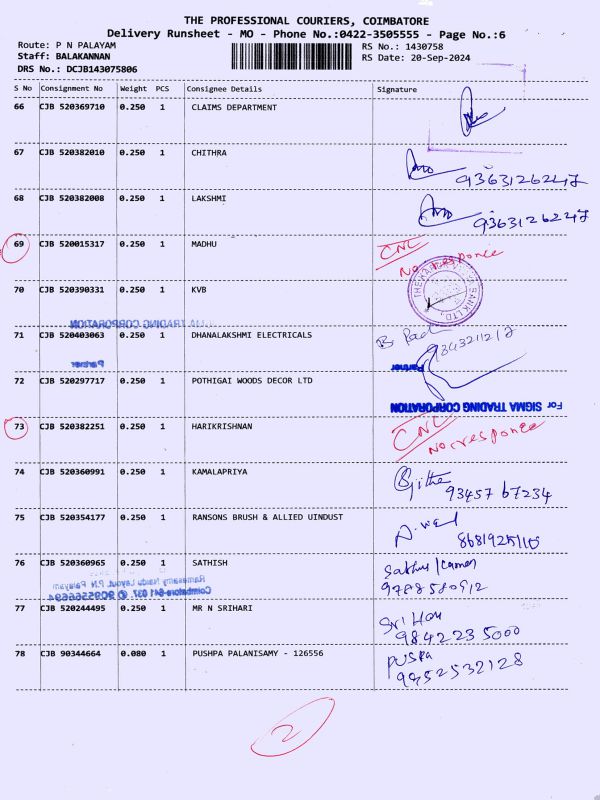 THE PROFESSIONAL COURIERS, COIMBATORE
Delivery Runsheet - MO - Phone No.:0422-3505555 - Page No.:6
Route: P N PALAYAM
RS No.: 1430758
Staff: BALAKANNAN
RS Date: 20-Sep-2024
DRS No.: DCJB143075806
S No Consignment No Weight PCS Consignee Details Signature
66 CJB 520369710 0.250 1 CLAIMS DEPARTMENT
67 CJB 520382010 0.250 1 CHITHRA
9363126247
68 CJB 520382008 0.250 1 LAKSHMI
9363126247
69 CJB 520015317 0.250 1 MADHU CNL
No responce
70 CJB 520390331 0.250 1 KVB
BANK LTD.
TRADING CORPORATION
71 CJB 520403063 0.250 1 DHANALAKSHMI ELECTRICALS
9843211217
Partner
Partner
72 CJB 520297717 0.250 1 POTHIGAI WOODS DECOR LTD
For SIGMA TRADING CORPORATION
73 CJB 520382251 0.250 1 HARIKRISHNAN CNL
No responce
74 CJB 520360991 0.250 1 KAMALAPRIYA
93457 67234
75 CJB 520354177 0.250 1 RANSONS BRUSH & ALLIED UINDUST
76 CJB 520360965 0.250 1 SATHISH
Ramasamy Naidu Layout, P.N. Palayam
Coimbatore-641 037.
77 CJB 520244495 0.250 1 MR N SRIHARI Sri Hari
9842235000
78 CJB 90344664 0.080 1 PUSHPA PALANISAMY - 126556 puspa
9952532128
2